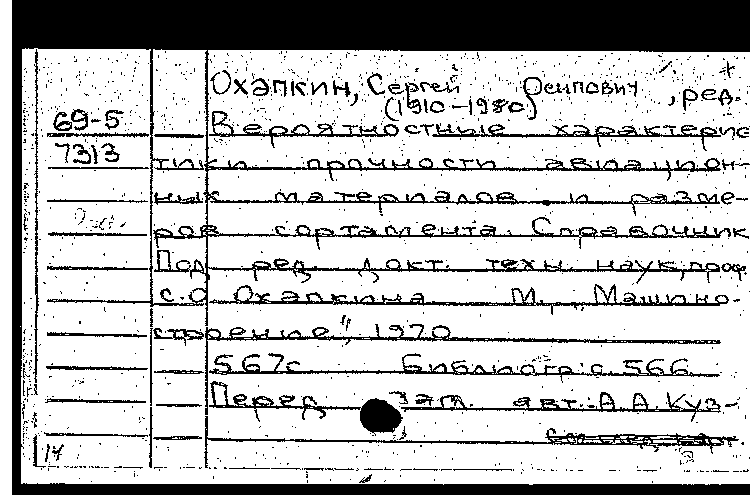 Охапкин, Сергей Осипович, ред.
(1910-1980)
69-5 Вероятностные характерис
7313 тики прочности авиацион-
ных материалов и разме-
ров сортамента. Справочник
Под ред. докт. техн. наук, проф.
С.О Охапкина М., „Машино-
строение", 1970
567с Библиогр: с. 566
Перед загл. авт.: А.А. Куз-
14